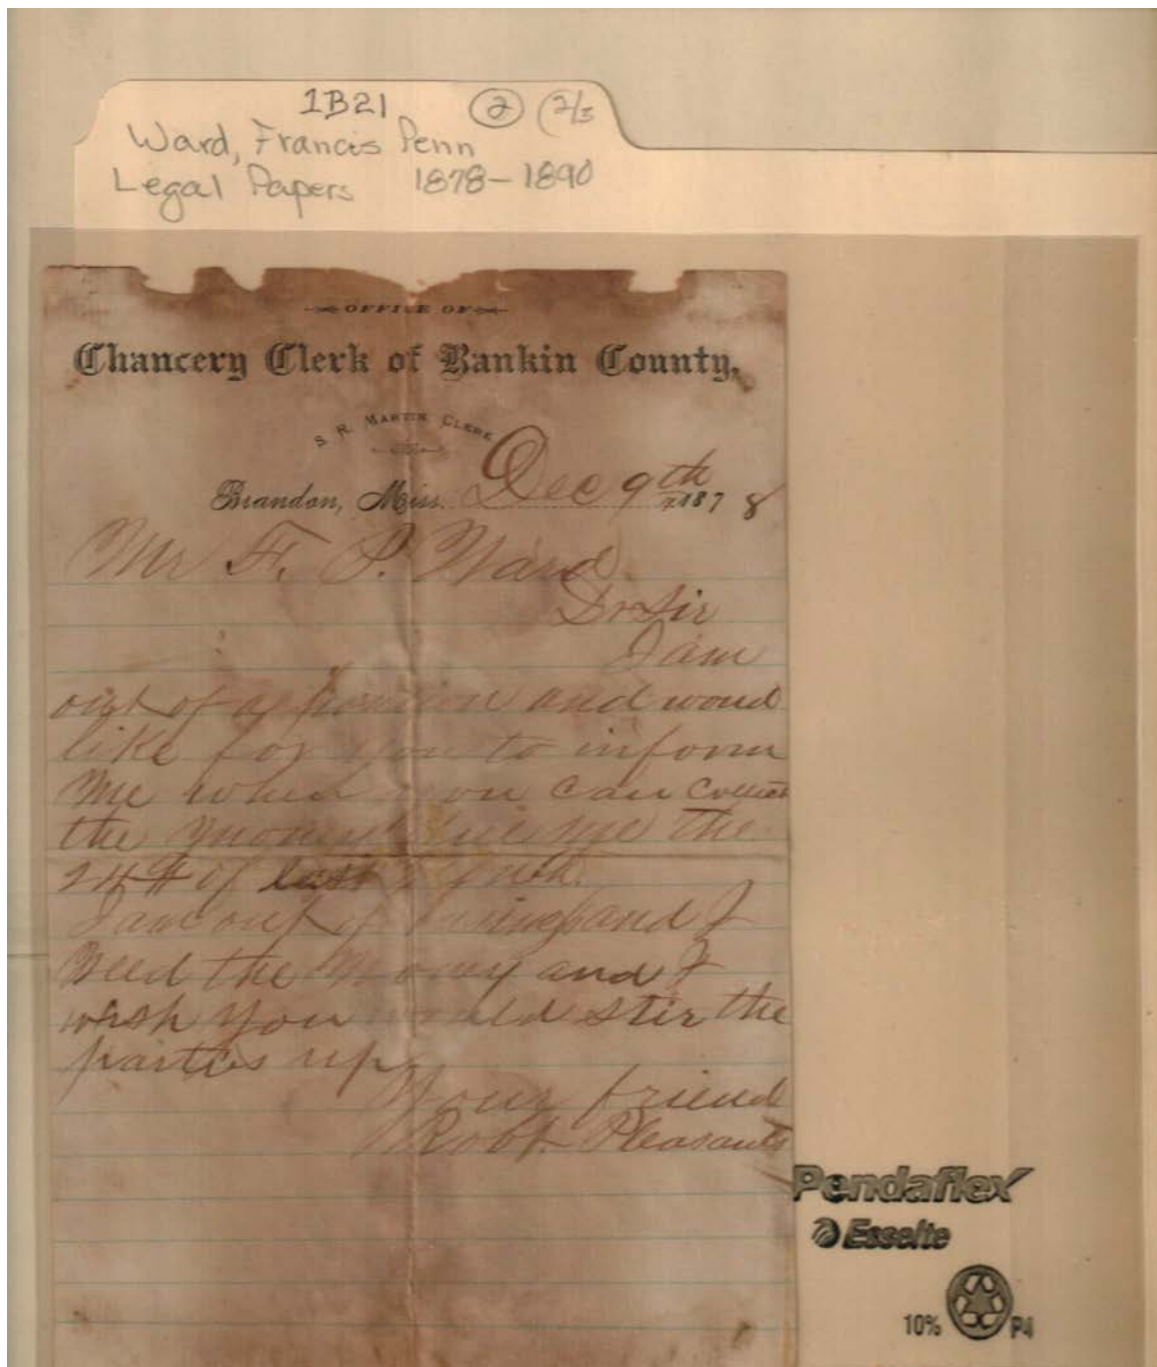 1B21 2 (2/3
Ward, Francis Penn
Legal Papers 1878-1890
OFFICE OF
Chancery Clerk of Rankin County,
S. R. MARTIN CLERK
Brandon, Miss. Dec 9th 1878
Mr F. P. Ward
Dr Sir
I am
out of a position and would
like for you to inform
Me when you can Collect
the money due me the
24# of last
I am out of and I
Need the Money and I
wish You would stir the
parties up
Your friend
Robt. Pleasants
Pendaflex
Esselte
10% P4